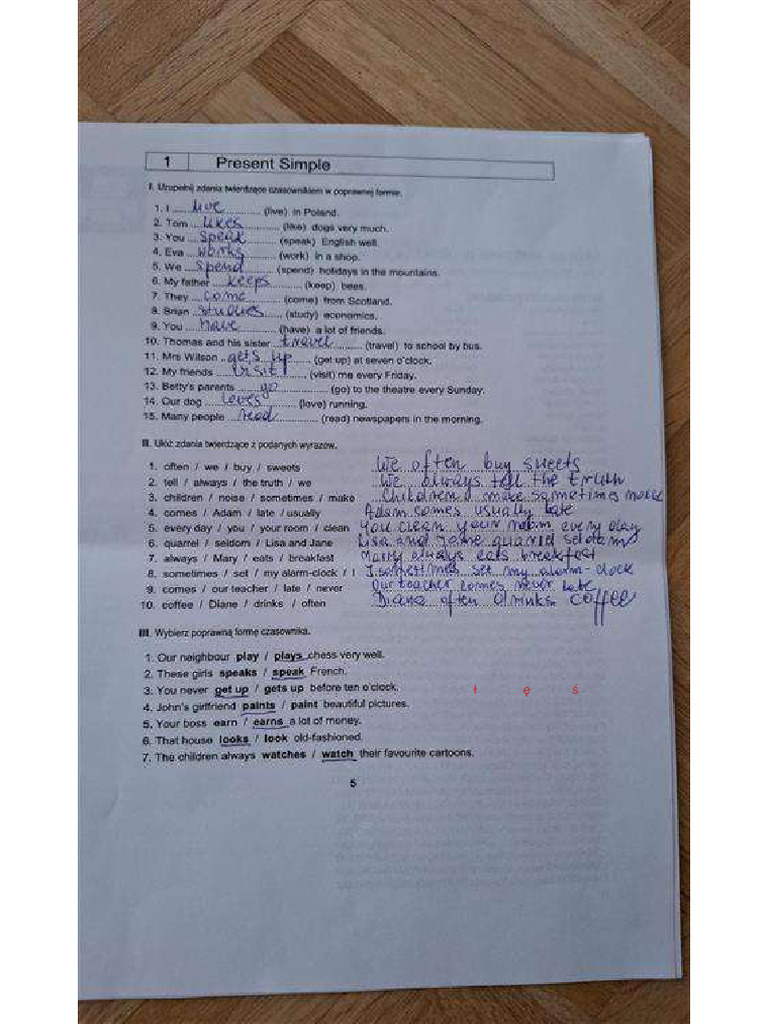 1 Present Simple
I. Uzupełnij zdania twierdzące czasownikiem w poprawnej formie.
1. I live (live) in Poland.
2. Tom likes (like) dogs very much.
3. You speak (speak) English well.
4. Eva works (work) in a shop.
5. We spend (spend) holidays in the mountains.
6. My father keeps (keep) bees.
7. They come (come) from Scotland.
8. Brian studies (study) economics.
9. You have (have) a lot of friends.
10. Thomas and his sister travel (travel) to school by bus.
11. Mrs Wilson gets up (get up) at seven o'clock.
12. My friends visit (visit) me every Friday.
13. Betty's parents go (go) to the theatre every Sunday.
14. Our dog loves (love) running.
15. Many people read (read) newspapers in the morning.
II. Ułóż zdania twierdzące z podanych wyrazów.
1. often / we / buy / sweets We often buy sweets
2. tell / always / the truth / we We always tell the truth
3. children / noise / sometimes / make Children make sometimes noise
4. comes / Adam / late / usually Adam comes usually late
5. every day / you / your room / clean You clean your room every day
6. quarrel / seldom / Lisa and Jane Lisa and Jane quarrel seldom
7. always / Mary / eats / breakfast Marry always eats breakfast
8. sometimes / set / my alarm-clock / I I sometimes set my alarm-clock
9. comes / our teacher / late / never Our teacher comes never late
10. coffee / Diane / drinks / often Diane often drinks coffee
III. Wybierz poprawną formę czasownika.
1. Our neighbour play / plays chess very well.
2. These girls speaks / speak French.
3. You never get up / gets up before ten o'clock.
ł ę ś
4. John's girlfriend paints / paint beautiful pictures.
5. Your boss earn / earns a lot of money.
6. That house looks / look old-fashioned.
7. The children always watches / watch their favourite cartoons.
5